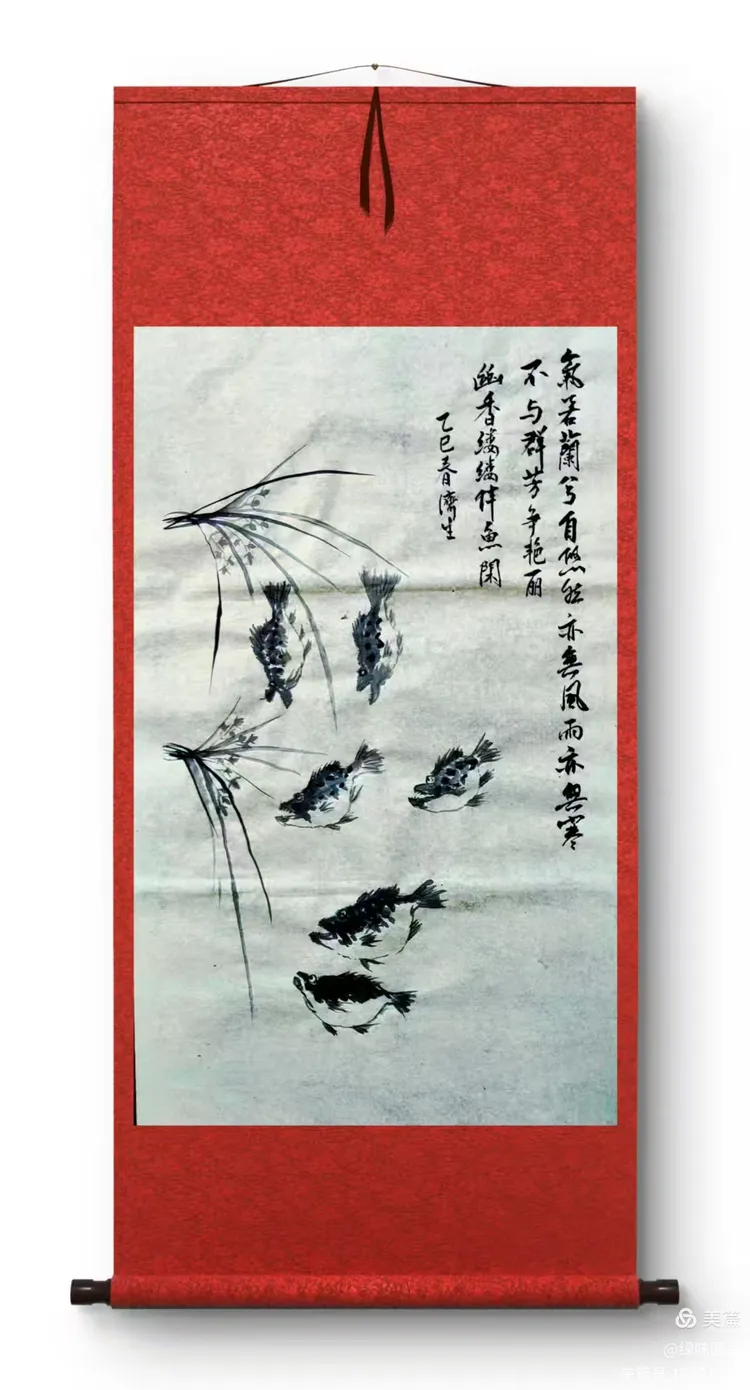 氣若蘭兮自悠然亦無風雨亦無寒
不与群芳争艳丽
幽香缕缕伴魚閑
乙巳春濟生
美篇